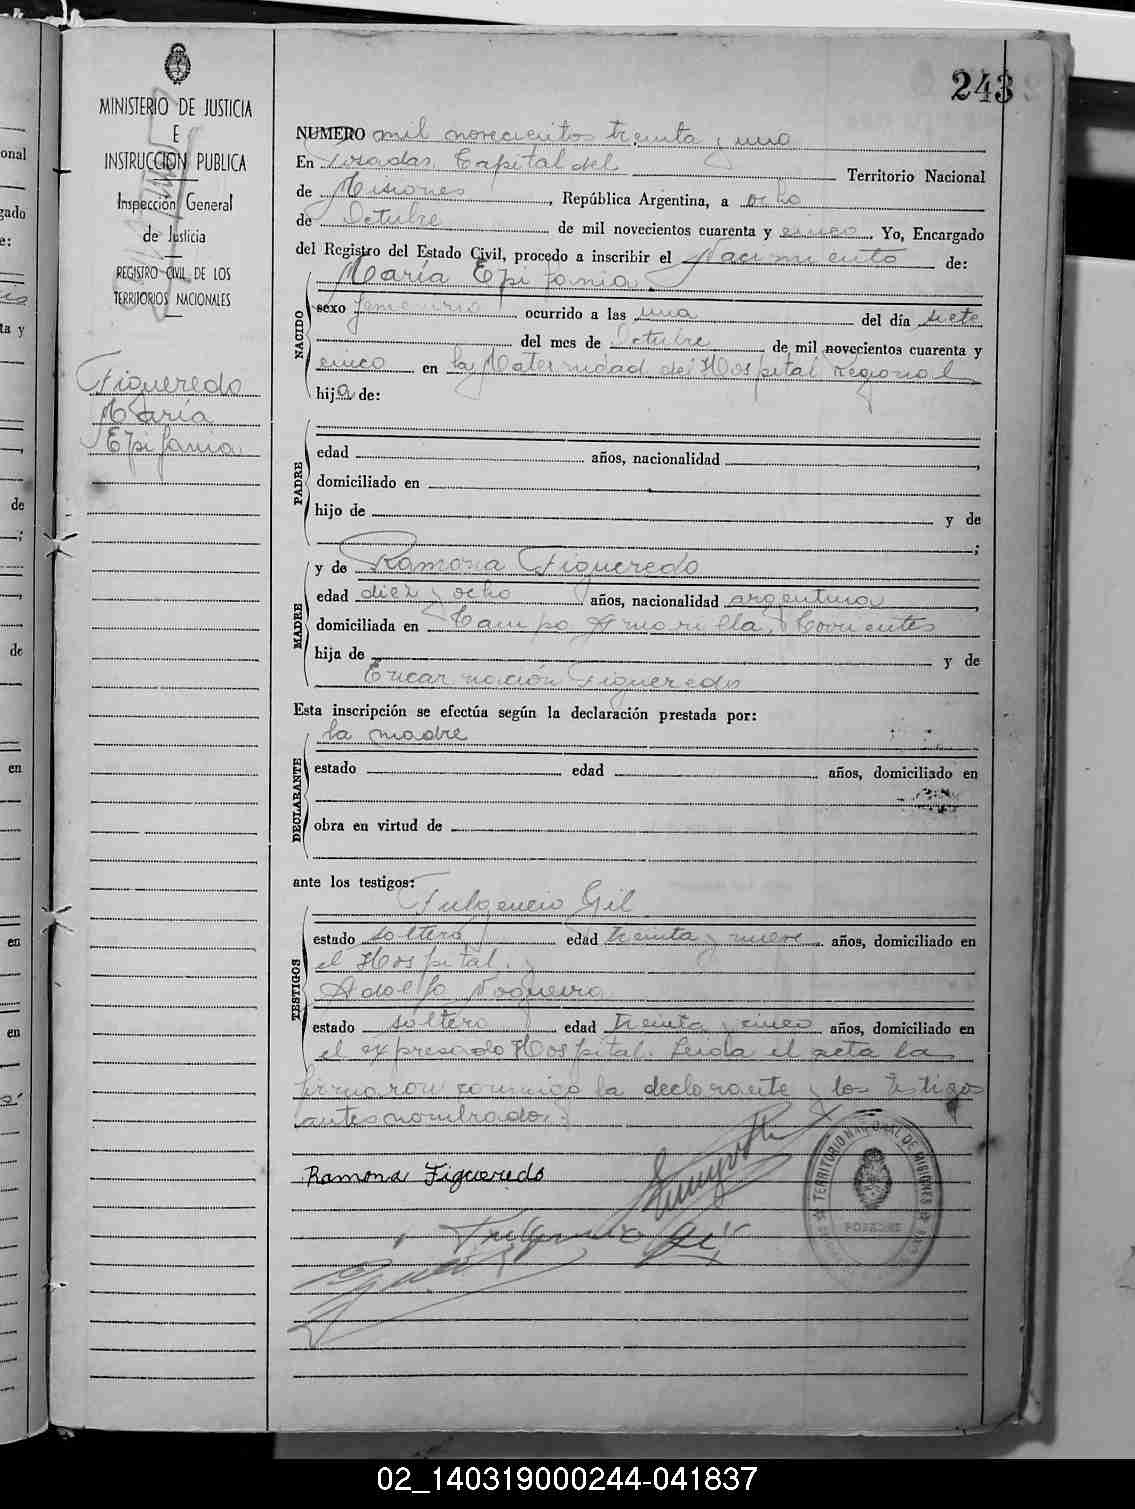 243
MINISTERIO DE JUSTICIA
E
INSTRUCCION PUBLICA
Inspección General
de Justicia
REGISTRO CIVIL DE LOS
TERRITORIOS NACIONALES
Figueredo
María
Epifania
NUMERO mil novecientos treinta y uno
En Posadas, Capital del Territorio Nacional
de Misiones, República Argentina, a ocho
de Octubre de mil novecientos cuarenta y cinco. Yo, Encargado
del Registro del Estado Civil, procedo a inscribir el Nacimiento de:
María Epifania.
NACIDO
sexo femenino ocurrido a las una del día siete
del mes de Octubre de mil novecientos cuarenta y
cinco en la Maternidad del Hospital Regional
hija de:
PADRE
edad años, nacionalidad ,
domiciliado en
hijo de y de
;
y de Ramona Figueredo
MADRE
edad diez y ocho años, nacionalidad argentina,
domiciliada en Campo Amarilla, Corrientes
hija de y de
Encarnación Figueredo
Esta inscripción se efectúa según la declaración prestada por:
la madre
DECLARANTE
estado edad años, domiciliado en
obra en virtud de
ante los testigos:
Fulgencio Gil
TESTIGOS
estado soltero edad treinta y nueve años, domiciliado en
el Hospital. y
Adolfo Nogueira
estado soltero edad treinta y cinco años, domiciliado en
el expresado Hospital. Leida el acta la
firmaron conmigo la declarante y los testigos
antes nombrados.
Ramona Figueredo
TERRITORIO NACIONAL DE MISIONES
POSADAS
onal
gado
e:
ta y
de
;
de
en
en
en
02_140319000244-041837